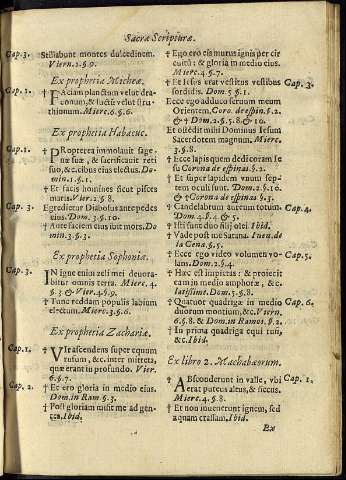 Sacræ Scripturæ.
Cap. 3. Stillabunt montes dulcedinem.
Viern. 2. §. 9.
Ex prophetia Micheæ.
Cap. 1. † FAciam planctum velut dra-
conum, & luctũ velut struthionum. Mierc. 6. §. 6.
Ex prophetia Habacuc.
Cap. 1. † PRopterea immolauit sage-
næ suæ, & sacrificauit reti
suo, &c. cibus eius electus. Do-
min. 1. §. 1.
† Et facis homines sicut pisces
maris. Vier. 2. §. 8.
Cap. 3. Egredietur Diabolus ante pedes
eius. Dom. 3. §. 10.
† Ante faciem eius ibit mors. Do-
min. 3. §. 3.
Ex prophetia Sophoniæ.
Cap. 3. IN igne enim zeli mei deuora-
bitur omnis terra. Mierc. 4.
§. 3. & Vier. 4. §. 9.
† Tunc reddam populis labium
electum. Mierc. 3. §. 6.
Ex prophetia Zachariæ.
Cap. 1. † VIr ascendens super equum
rufum, &c. inter mirteta,
quæ erant in profundo. Vier.
6. §. 7.
Cap. 2. † Et ero gloria in medio eius.
Dom. in Ram. §. 3.
† Post gloriam misit me ad gen-
tes. Ibid.
† Ego ero eis murus ignis per cir
cuitũ: & gloria in medio eius.
Mierc. 4. §. 7.
† Et Iesus erat vestitus vestibus Cap. 3.
sordidis. Dom. 5. §. 1.
Ecce ego adduco seruum meum
Orientem. Coro. de espin. §. 2.
& † Dom. 2. §. 5. 8. & 10.
Et ostédit mihi Dominus Iesum
Sacerdotem magnum. Mierc.
3. §. 8.
† Ecce lapis quem dedi coram Ie
su Corona de espinas §. 2.
† Et super lapidem vnum sep-
tem oculi sunt. Dom. 2. §. 3.
& † Corona de espinas §. 3.
† Candelabrum aureum totum. Cap. 4.
Dom. 4. §. 4 & 5.
† Isti sunt duo filij olei. Ibid.
† Vade post me Satana. Iueu. de
la Cena. §. 5.
† Ecce ego video volumen vo- Cap. 5.
lans. Dom. 2. §. 4.
† Hæc est impietas: & proiecit
eam in medio amphoræ, &c.
latissime. Dom. 5. §. 8.
† Quatuor quadrigæ in medio Cap. 6.
duorum montium, &c. Viern.
6. §. 8. & Dom. in Ramos §. 2.
† In prima quadriga equi rufi,
&c. Ibid.
Ex libro 2. Machabæorum.
† ABsconderunt in valle, vbi Cap. 1.
erat puteus altus, & siccus.
Mierc. 4. §. 8.
† Et non inuenerunt ignem, sed
aquam crassam. Ibid.
Ex